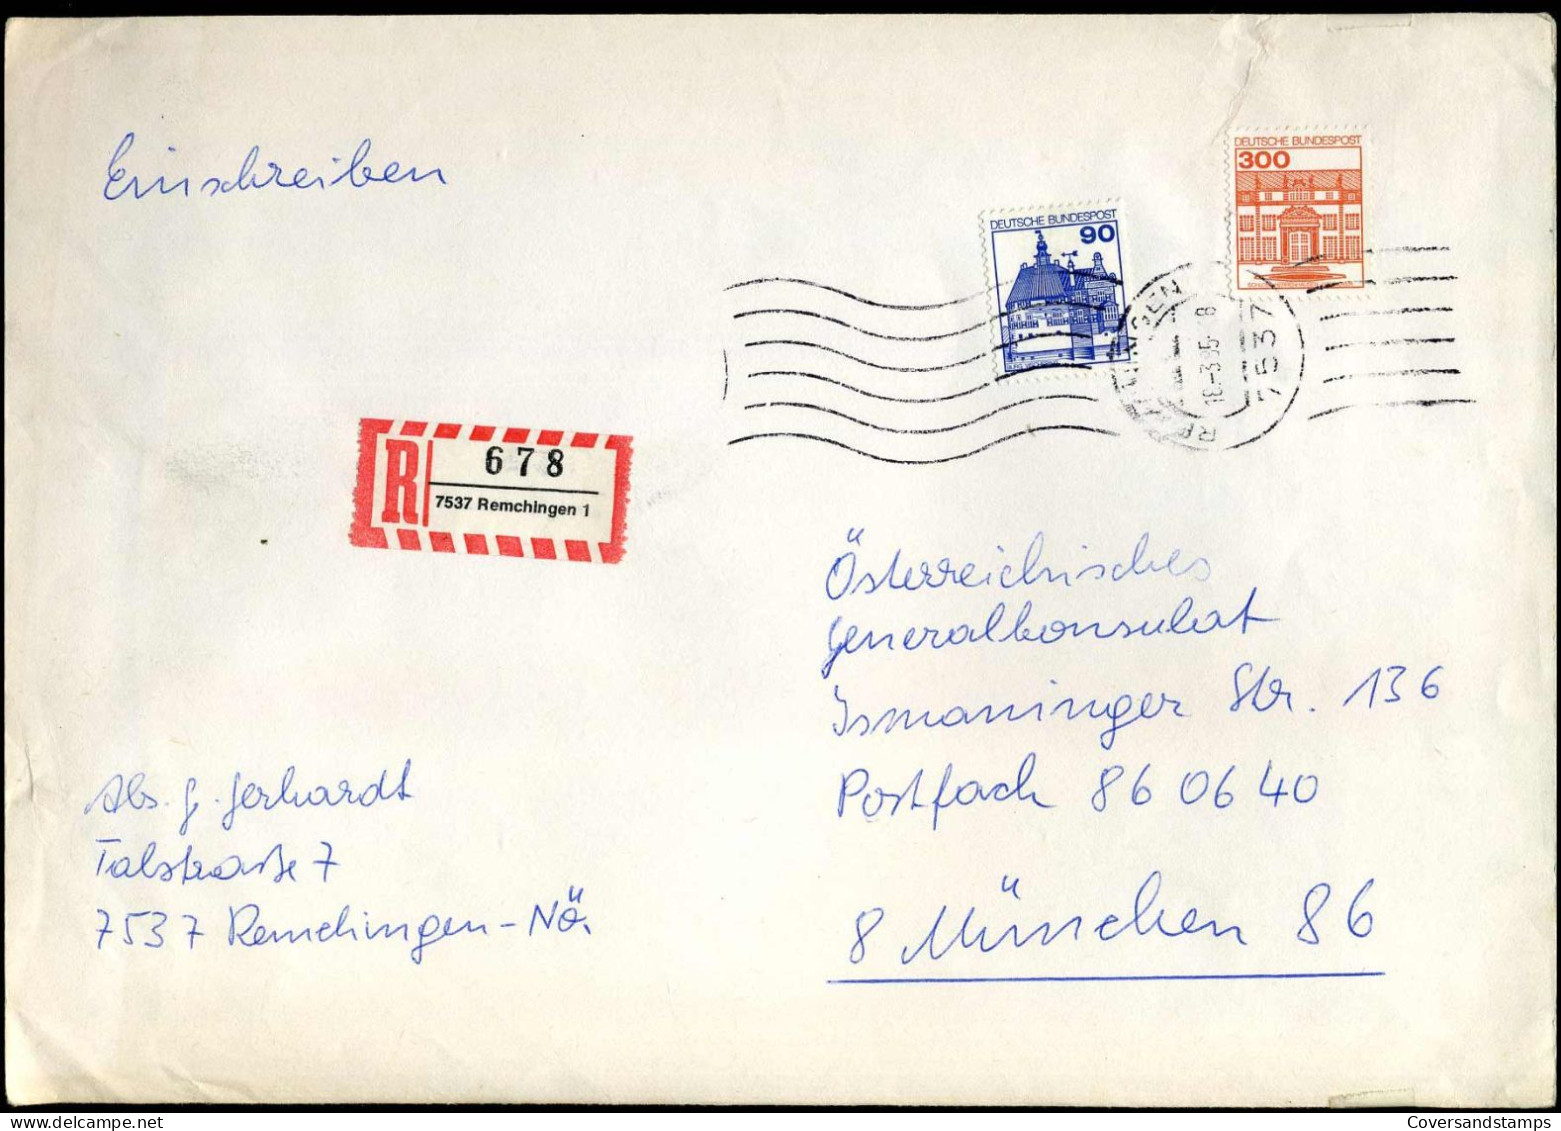 Einschreiben
DEUTSCHE BUNDESPOST
300
DEUTSCHE BUNDESPOST
90
REMCHINGEN
7537
R
678
7537 Remchingen 1
Österreichisches
Generalkonsulat
Ismaninger Str. 136
Postfach 86 06 40
8 München 86
Abs. G. Gerhardt
Talstraße 7
7537 Remchingen-NÖ.
Coversandstamps